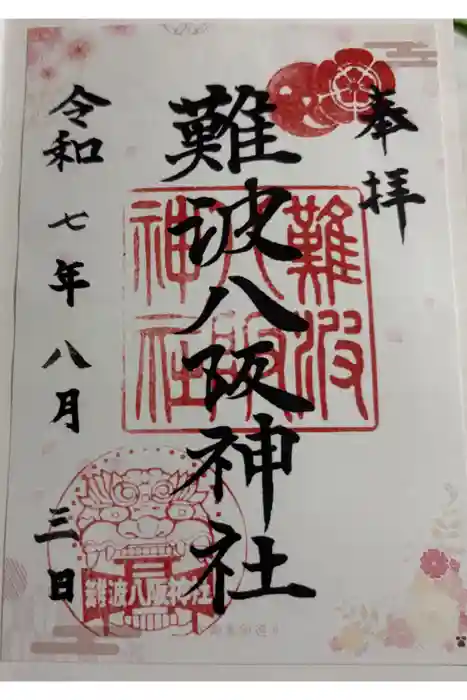 奉拝
難波八阪神社
令和七年八月三日
難波
八阪
神社
難波八阪神社